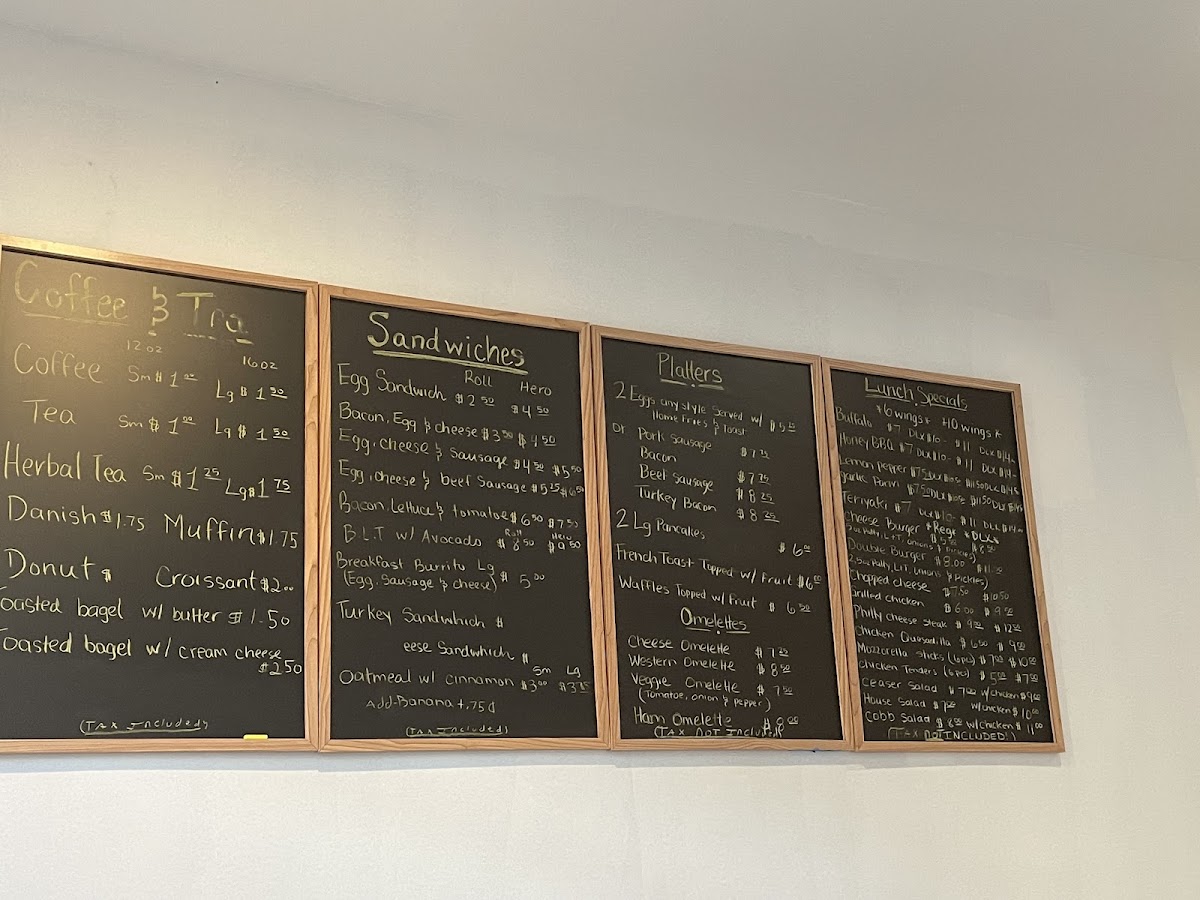 Coffee & Tea
12oz 16oz
Coffee Sm $1.00 Lg $1.50
Tea Sm $1.00 Lg $1.50
Herbal Tea Sm $1.25 Lg $1.75
Danish $1.75 Muffin $1.75
Donut $ Croissant $2.00
oasted bagel w/ butter $1.50
oasted bagel w/ cream cheese
$2.50
(TAX Included)
Sandwiches
Roll Hero
Egg Sandwich $2.50 $4.50
Bacon, Egg & cheese $3.50 $4.50
Egg, cheese & Sausage $4.50 $5.50
Egg, cheese & beef Sausage $5.25 $6.50
Bacon, Lettuce & tomatoe $6.50 $7.50
Roll Hero
B.L.T w/ Avocado $8.50 $9.50
Breakfast Burrito Lg
(Egg, Sausage & cheese) $5.00
Turkey Sandwhich $
eese Sandwhich $
Sm Lg
Oatmeal w/ cinnamon $3.00 $3.75
Add-Banana +.75¢
(Tax Included)
Platters
2 Eggs any style Served w/ $5
Home Fries & Toast
or Pork Sausage
Bacon
Beef Sausage $7.75
Turkey Bacon $8.25
$8.25
2 Lg Pancakes
$6.00
French Toast Topped w/ Fruit $6.00
Waffles Topped w/ Fruit $6.50
Omelettes
Cheese Omelette $7.25
Western Omelette $8.50
Veggie Omelette $7.50
(Tomatoe, onion & pepper)
Ham Omelette
(TAX NOT Included)
Lunch Specials
*6 wings* *10 wings*
Buffalo $7 DLX $10- $11 DLX $14-
Honey BBQ $7 DLX $10- $11 DLX $14-
Lemon pepper
garlic Parm
Teriyaki $7 DLX $10- $11 DLX $14
Cheese Burger *Reg* *DLX*
Double Burger $8.00
Chopped cheese $7.50 $10.50
Grilled chicken $6.00 $9.00
Philly cheese Steak $9.00 $12.00
Chicken Quesadilla $6.50 $9.00
Mozzarella Sticks (6pcs) $7.00 $10.00
Chicken Tenders (6pcs) $5.00 $7.00
Ceaser Salad $7.00 w/chicken $9.00
House Salad $7.00 w/chicken $10.00
Cobb Salad $8.50 w/chicken $11.00
(TAX NOT INCLUDED!)